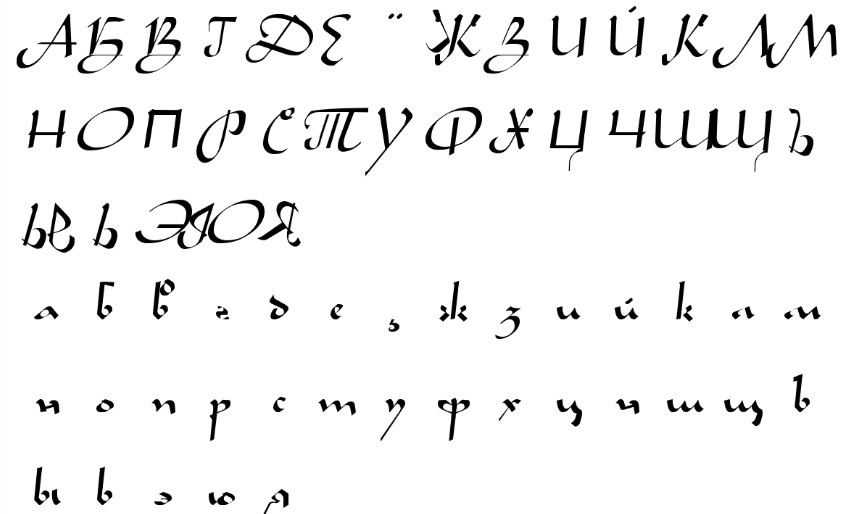 А Б В Г Д Е ¨ Ж З И Й К Л М
Н О П Р С Т У Ф Х Ц Ч Ш Щ Ъ
Ы Ь Э Ю Я
а б в г д е ¸ ж з и й к л м
н о п р с т у ф х ц ч ш щ ъ
ы ь э ю я